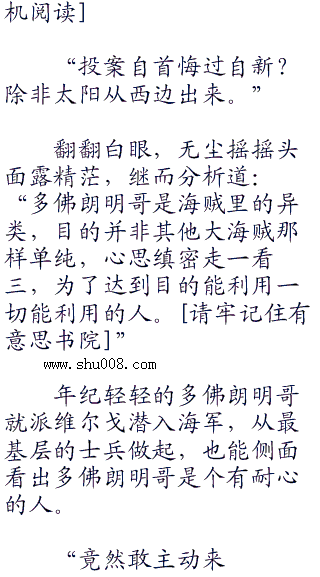 机阅读]
“投案自首悔过自新？
除非太阳从西边出来。”
翻翻白眼，无尘摇摇头
面露精茫，继而分析道：
“多佛朗明哥是海贼里的异
类，目的并非其他大海贼那
样单纯，心思缜密走一看
三，为了达到目的能利用一
切能利用的人。[请牢记住有
意思书院]”
www.shu008.com
年纪轻轻的多佛朗明哥
就派维尔戈潜入海军，从最
基层的士兵做起，也能侧面
看出多佛朗明哥是个有耐心
的人。
“竟然敢主动来